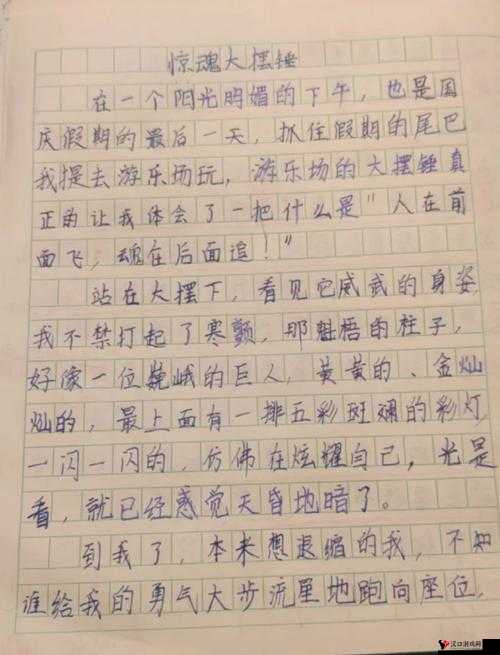 惊魂大摆锤
在一个阳光明媚的下午，也是国
庆假期的最后一天，抓住假期的尾巴
我提去游乐场玩，游乐场的大摆锤真
正的让我体会了一把什么是"人在前
面飞，魂在后面追！"
站在大摆下，看见它威武的身姿
我不禁打起了寒颤，那魁梧的柱子，
好像一位巍峨的巨人，黄黄的、金灿
灿的，最上面有一排五彩斑斓的彩灯
一闪一闪的，仿佛在炫耀自己，光是
看，就已经感觉天昏地暗了。
到我了，本来想退缩的我，不知
谁给我的勇气大步流星地跑向座位，
汉口游戏网